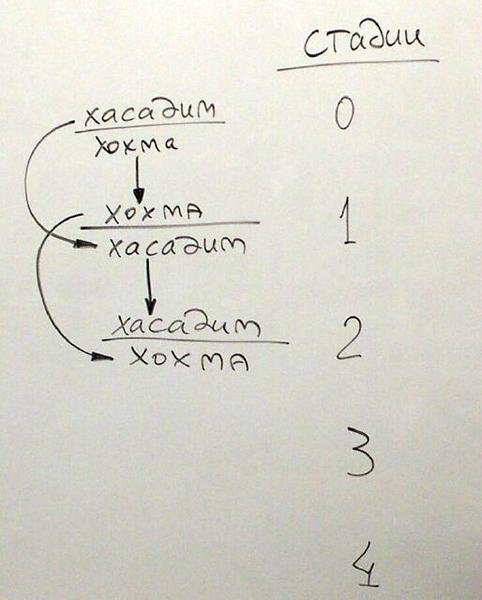 стадии
хасадим 0
хохма
хохма 1
хасадим
хасадим 2
хохма
3
4